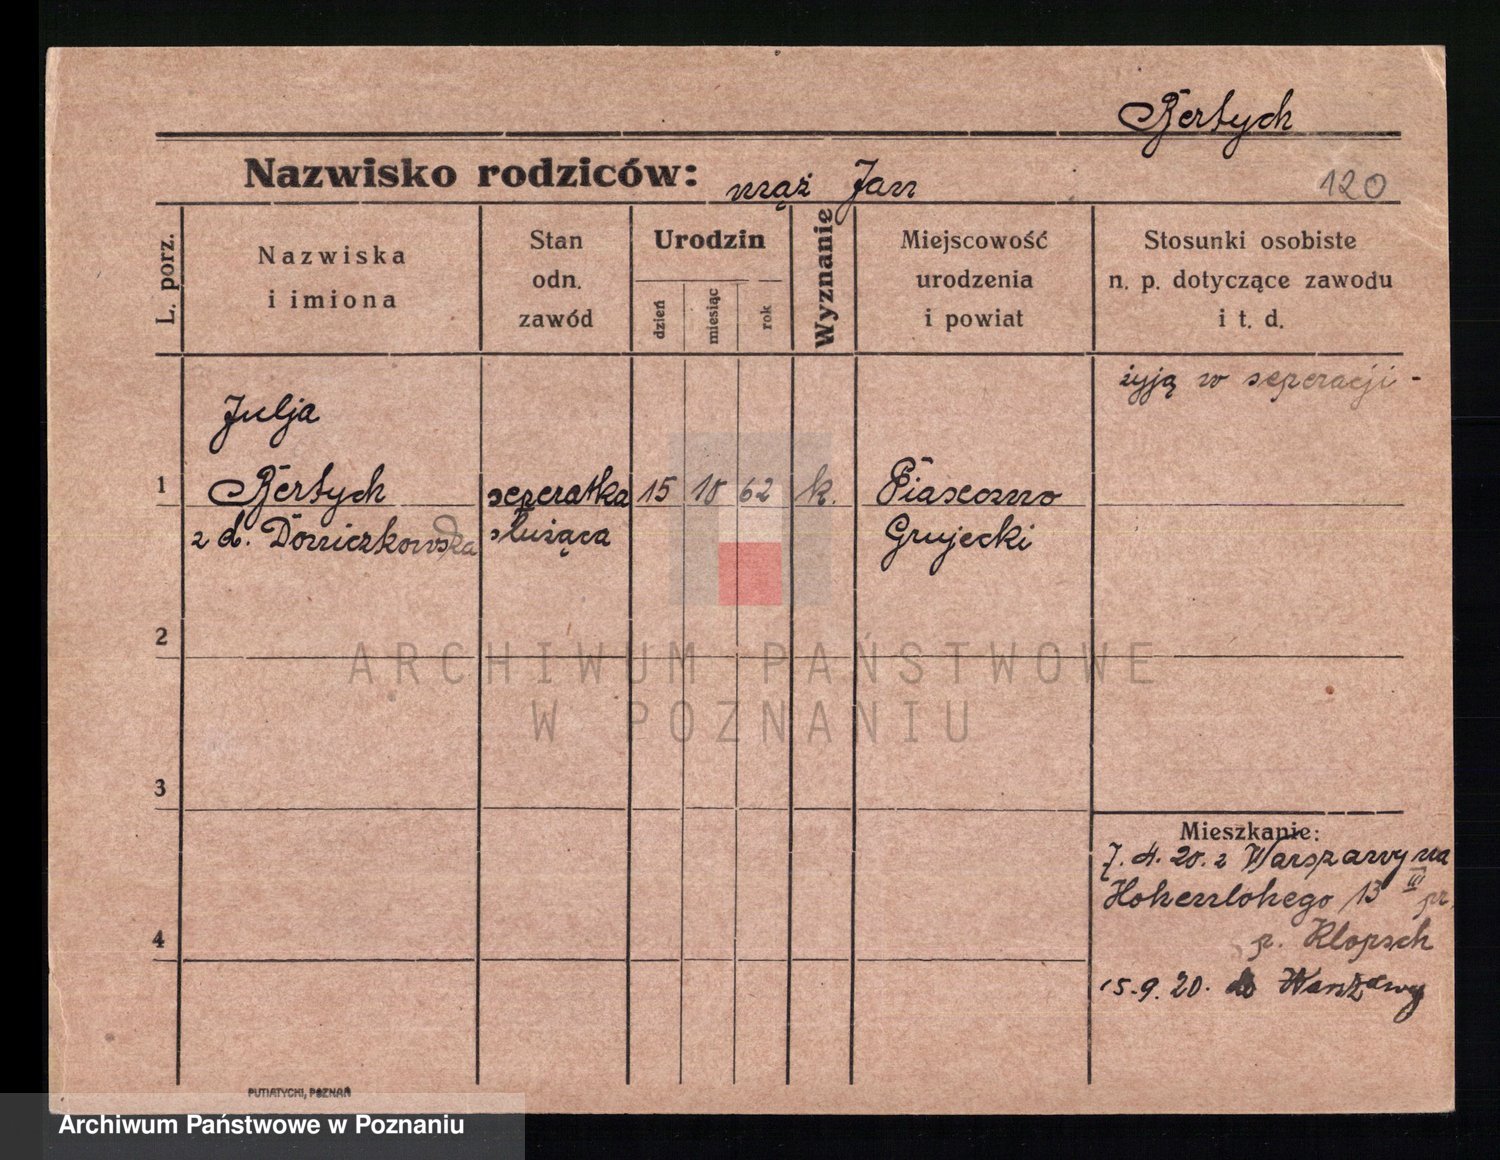 Bertych
Nazwisko rodziców: mąż Jan
120
L. porz.
Nazwiska
i imiona
Stan
odn.
zawód
Urodzin
dzień
miesiąc
rok
Wyznanie
Miejscowość
urodzenia
i powiat
Stosunki osobiste
n. p. dotyczące zawodu
i t. d.
żyją w seperacji -
Julja
1 Bertych seperatka 15 10 62 k. Piaseczno
z d. Domiczkowska służąca Grujecki
2
ARCHIWUM PAŃSTWOWE
W POZNANIU
3
Mieszkanie:
7. 4. 20. z Warszawy na
Hohenlohego 13 III pr.
p. Klopsch
4
15. 9. 20. do Warszawy
PUTIATYCKI, POZNAŃ
Archiwum Państwowe w Poznaniu